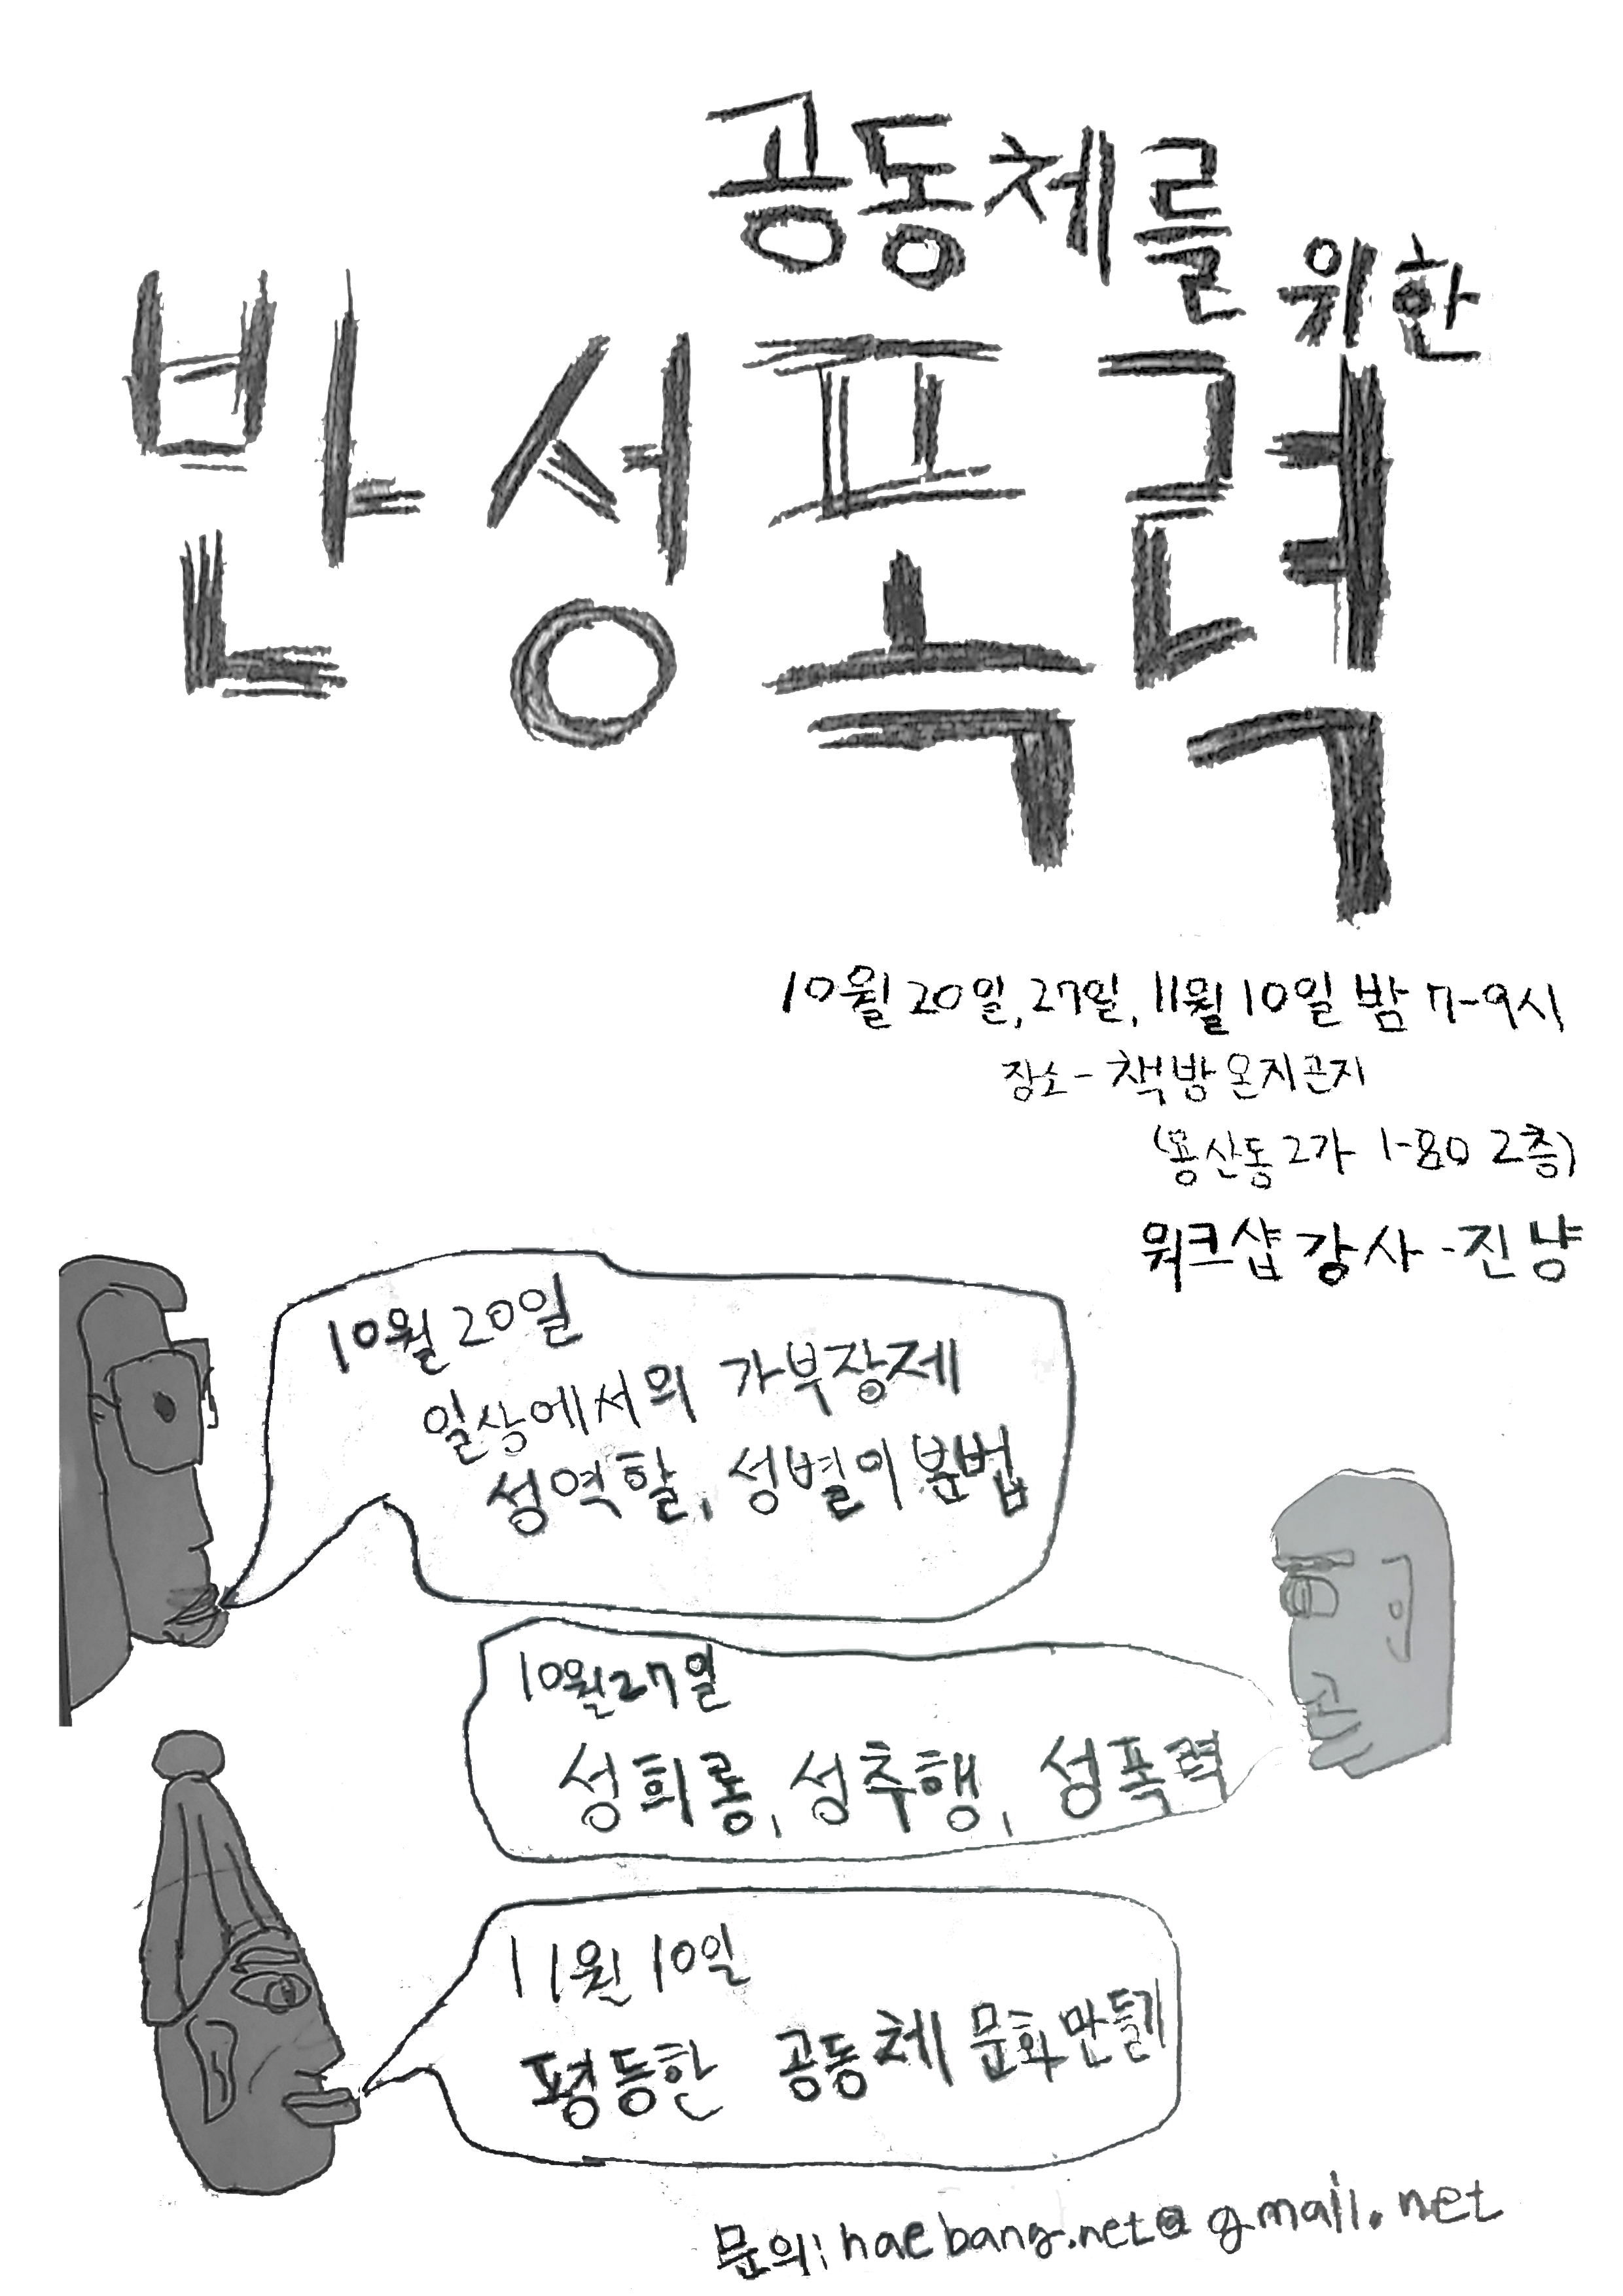 공동체를 위한
반성폭력
10월 20일, 27일, 11월 10일 밤 7-9시
장소 - 책방 온지곤지
(용산동2가 1-80 2층)
워크샵 강사 - 진냥
10월 20일
일상에서의 가부장제
성역할, 성별이분법
10월 27일
성희롱, 성추행, 성폭력
11월 10일
평등한 공동체 문화 만들기
문의: haebang.net@gmail.net